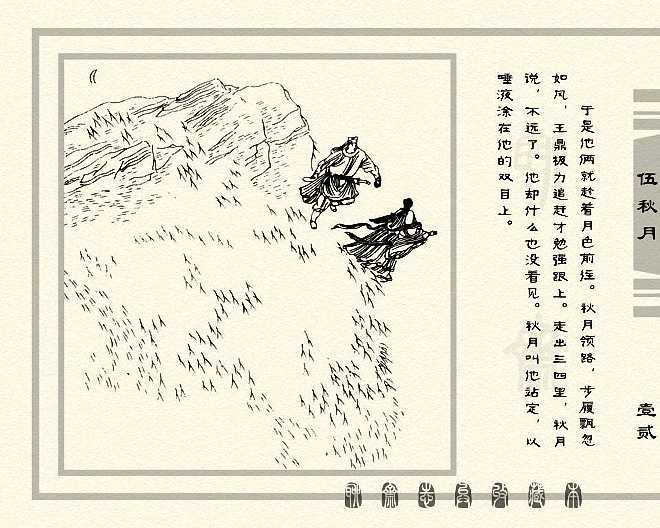 于是他俩就趁着月色前往。秋月领路，步履飘忽
如风，王鼎极力追赶才勉强跟上。走出三四里，秋月
说，不远了。他却什么也没看见。秋月叫他站定，以
唾液涂在他的双目上。
伍秋月
壹贰